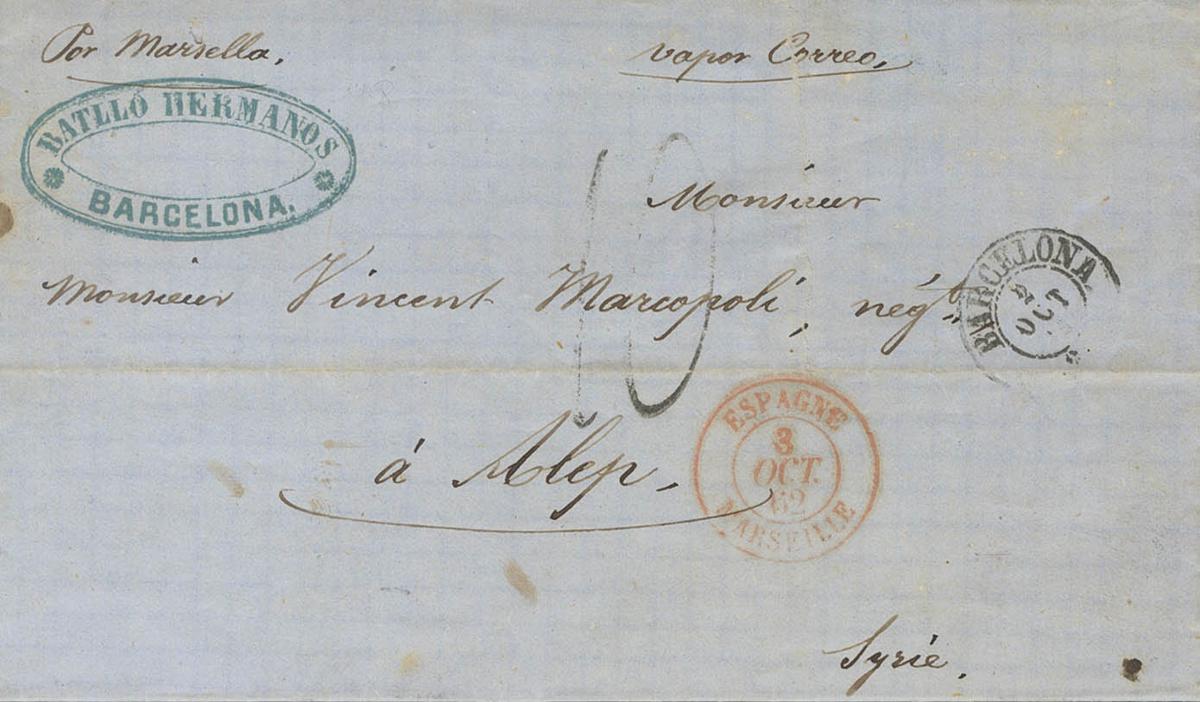 Por Marsella.
vapor Correo.
BATLLÓ HERMANOS
BARCELONA.
10
Monsieur
Monsieur Vincent Marcopoli, négt.
BARCELONA
2
OCT
ESPAGNE
3
OCT.
62
MARSEILLE
à Alep.
Syrie.